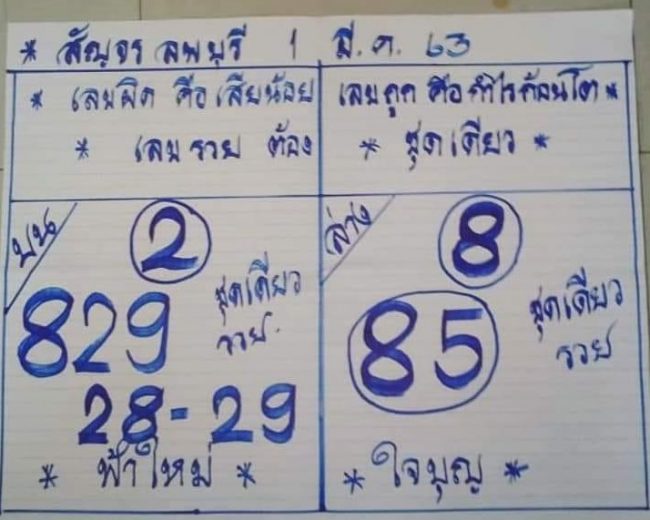 * สัญจร ลพบุรี 1 มี.ค. 63
* เลขผิด คือ เสียน้อย
* เลข รวย ต้อง
เลขถูก คือ กำไรก้อนโต *
* ชุดเดียว *
บน
2
829
ชุดเดียว
รวย.
28 - 29
* ฟ้าใหม่ *
ล่าง
8
85
ชุดเดียว
รวย
* ใจบุญ *